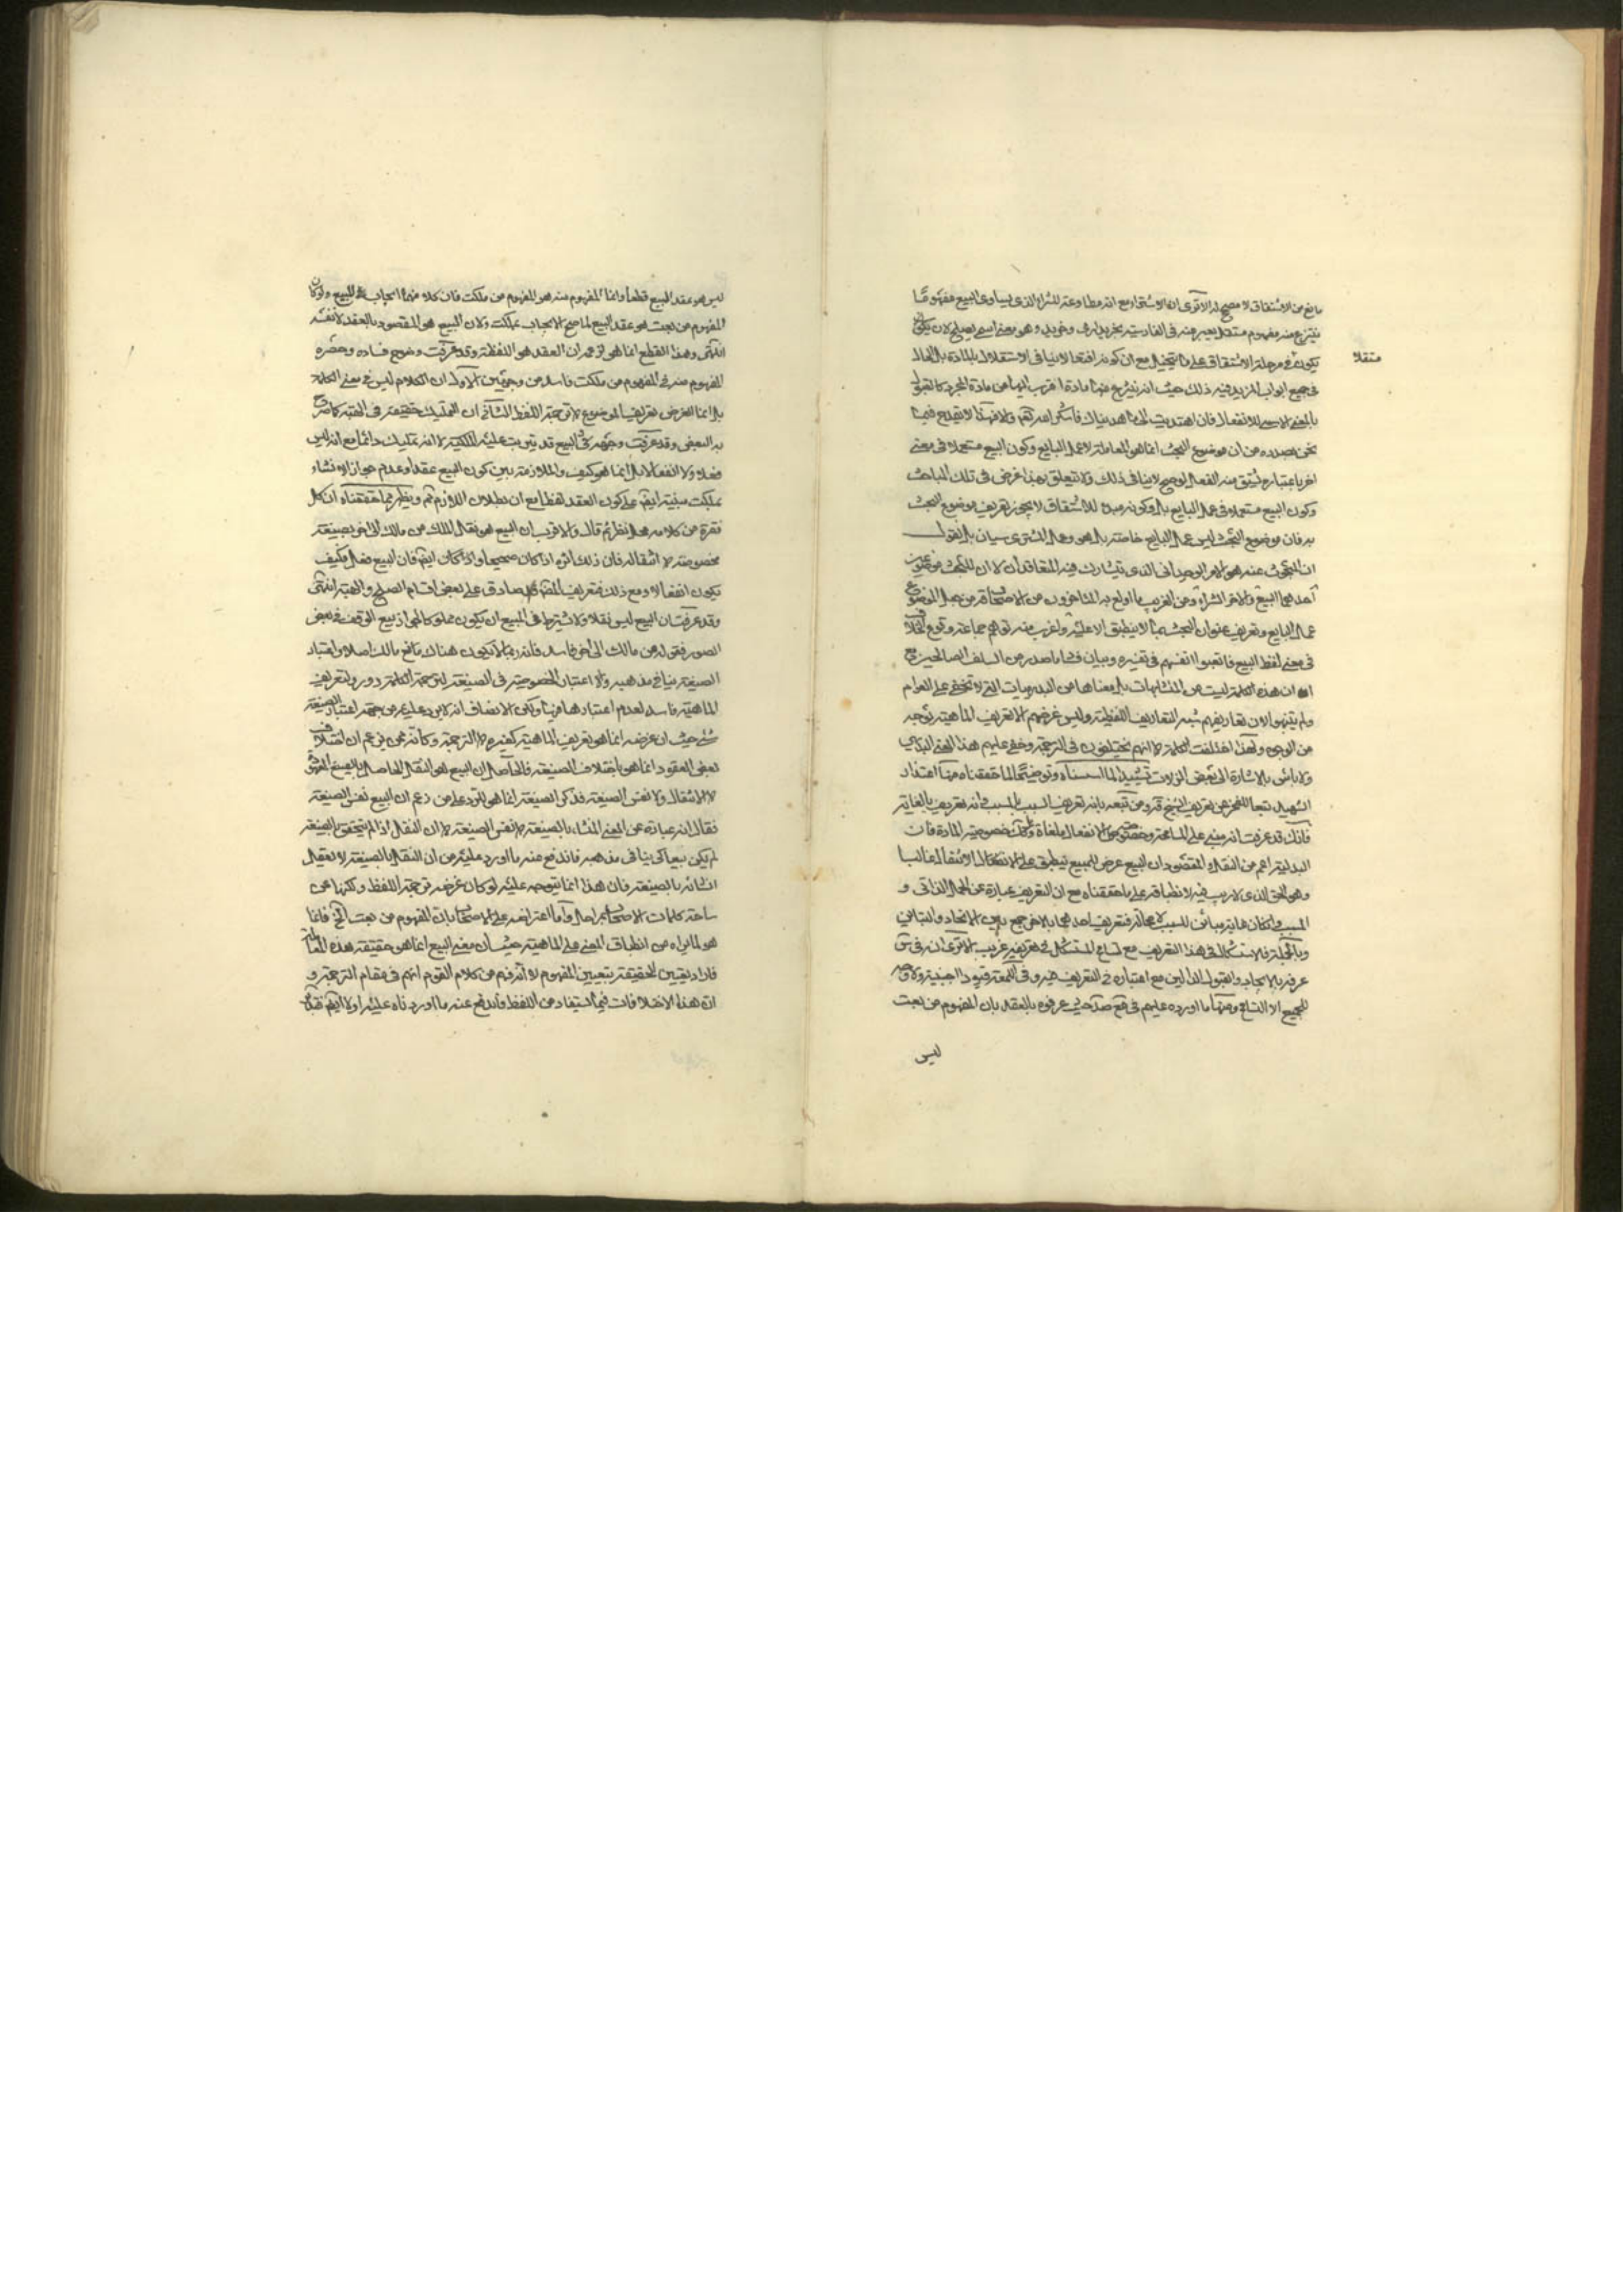 مانع من الاشتقاق لا مصحح له الا ترى ان الاشتراء مع انه مطاوعة للشراء الذى يساوى البيع مفهوما
ينتزع منه مفهوم مستقل يعبر عنه فى الفارسية بخريدارى وخريد وهو معنى اسمى يصلح لان يكون
منتقلا
يكون فى مرحلة الاشتقاق على ما يتخيل مع ان كونه انفعالا لا ينافى الاستقلال بالمادة بل الحال
فى جميع ابواب المزيد فيه ذلك حيث انه ينتزع منها مادة اقرب اليها من مادة المجرد كالقبول
بالمعنى الاسمى للانفعال فان اهتديت الى ما هديناك فاشكر الله والا فهذا لا يقدح فيما
نحن بصدده من ان موضوع البحث انما هو المعاملة لا عمل البايع وكون البيع مستعملا فى معنى
اخر باعتباره يشتق منه الفعل لو صح لا ينافى ذلك ولا تتعلق بهذا غرض فى تلك المباحث
وكون البيع مستعملا فى عمل البايع بل وكونه مبدء للاشتقاق لا يجوز تعريف موضوع البحث
به فان موضوع البحث ليس عمل البايع خاصة بل هو وعمل المشترى سيان بل نقول
ان المبحوث عنه هو الامر الوحدانى الذى يتشارك فيه المتعاقدان لا ان للبحث موضوعين
احدهما البيع والاخر الشراء ومن الغريب ما اولع به المتاخرون من الاصحاب من جعل الموضوع
عمل البايع وتعريف عنوان البحث بما لا ينطبق الا عليه واغرب منه توهم جماعة وقوع الخلاف
فى معنى لفظ البيع فاتعبوا انفسهم فى تفسيره وبيان فساد ما صدر من السلف الصالحين مع
ان هذه الكلمة ليست من المتشابهات بل معناها من البديهيات التى لا تخفى على العوام
ولم يتنبهوا لان تعاريفهم شبه التعاريف اللفظية وليس غرضهم الا تعريف الماهية بوجه
من الوجوه ولهذا اختلفت الكلمة لا انهم يختلفون فى الترجمة وخفى عليهم هذا المعنى البديهى
ولا باس بالاشارة الى بعض الزلات تشييدا لما اسسناه وتوضيحا لما حققناه منها اعتذار
الشهيد تبعا للفخر عن تعريف الشيخ قده ومن تبعه بانه تعريف السبب بالمسبب فانه تعريف بالغاية
فانك قد عرفت انه مبنى على المسامحة وخصوص الانفعال ملغاة وكك خصوصية المادة فان
البدلية اعم من النقل والمقصود ان البيع عرض للمبيع ينطبق على الانتقال غالبا
وهو الحق الذى لا ريب فيه لانطباقه على ما حققناه مع ان التعريف عبارة عن الحمل الذاتى و
المسبب وان كان غاية مباين للسبب لا محالة فتعريف احدهما بالاخر جمع بين الاتحاد والتباين
وبالجملة فلا اشكال فى هذا التعريف
عرفه بالايجاب والقبول الدالين مع اعتباره فى التعريف
للجميع الا التسامح ومنها ما اورده عليهم فى مع صد حيث عرفوه بالعقد بان المفهوم من بعت
ليس
ليس هو عقد البيع قطعا وانما المفهوم منه هو المفهوم من ملكت فان كلا منهما ايجاب للبيع ولو كان
المفهوم من بعت هو عقد البيع لما صح الايجاب بملكت ولان البيع هو المقصود بالعقد لا نفسه
انتهى وهذا القطع انما هو لزعمه ان العقد هو اللفظ وقد عرفت وضوح فساده وحصره
المفهوم منه فى المفهوم من ملكت فاسد من وجهين الاول ان الكلام ليس فى معنى الكلمة
بل انما الغرض تعريف الموضوع لا ترجمة اللفظ الثانى ان التمليك حقيقة فى الهبة كما صرح
به البعض وقد عرفت وجهه فى البيع قد يترتب عليه الملكية لا انه تمليك دائما مع انه ليس
فعلا ولا انفعالا بل انما هو كيف والملازمة بين كون البيع عقدا وعدم جواز الانشاء
بملكت مبنية ايضا على كون العقد لفظا مع ان بطلان اللازم ثم ويظهر مما حققناه ان كل
فقرة من كلامه محل نظر ثم قال والاقرب ان البيع هو نقل الملك من مالك الى اخر بصيغة
مخصوصة لا انتقاله فان ذلك اثره اذا كان صحيحا واذا كان ايضا فان البيع فعل فكيف
يكون انفعالا ومع ذلك فتعريف المصنف صادق على بعض اقسام الصلح والهبة انتهى
وقد عرفت ان البيع ليس نقلا ولا يشترط فى المبيع ان يكون مملوكا لجواز بيع الوقف فى بعض
الصور فقوله من مالك الى اخر فاسد فانه ربما لا يكون هناك مالك اصلا واعتبار
الصيغة ينافى مذهبه ولا اعتبار الخصوصية فى الصيغة ليس من جهة الكلمة دور ولتعريف
الماهية فاسد لعدم اعتبارها فيها ولكن الانصاف انه لا يرد عليه من جهة اعتبار الصيغة
شئ حيث ان غرضه انما هو تعريف الماهية كغيره لا الترجمة وكانه ممن يزعم ان اختلاف
بعض العقود انما هو باختلاف الصيغة فالحاصل ان البيع هو النقل الحاصل بالصيغ
لا الانتقال ولا نفس الصيغة فذكر الصيغة انما هى للرد على من زعم ان البيع نفس الصيغة
فقال انه عبارة عن المعنى المنشأ بالصيغة لا نفس الصيغة لا ان النقل اذا لم يتحقق بالصيغة
لم يكن بيعا كى ينافى مذهبه فاندفع عنه ما اورد عليه من ان النقل بالصيغة لا يعقل
انشائه بالصيغة فان هذا انما يتوجه عليه لو كان غرضه ترجمة اللفظ ولكنها عن
ساحة كلمات الاصحاب بمراحل واما اعتراضه على الاصحاب بان المفهوم من بعت الخ فانما
هو لما يراه من انطباق المعنى على الماهية حيث ان معنى البيع انما هو حقيقة هذه المعاملة
فاراد تعيين الحقيقة بتعيين المفهوم لا انه فهم من كلام القوم انهم فى مقام الترجمة و
ان هذه الاختلافات فيما يستفاد من اللفظ فاندفع عنه ما اوردناه عليه اولا